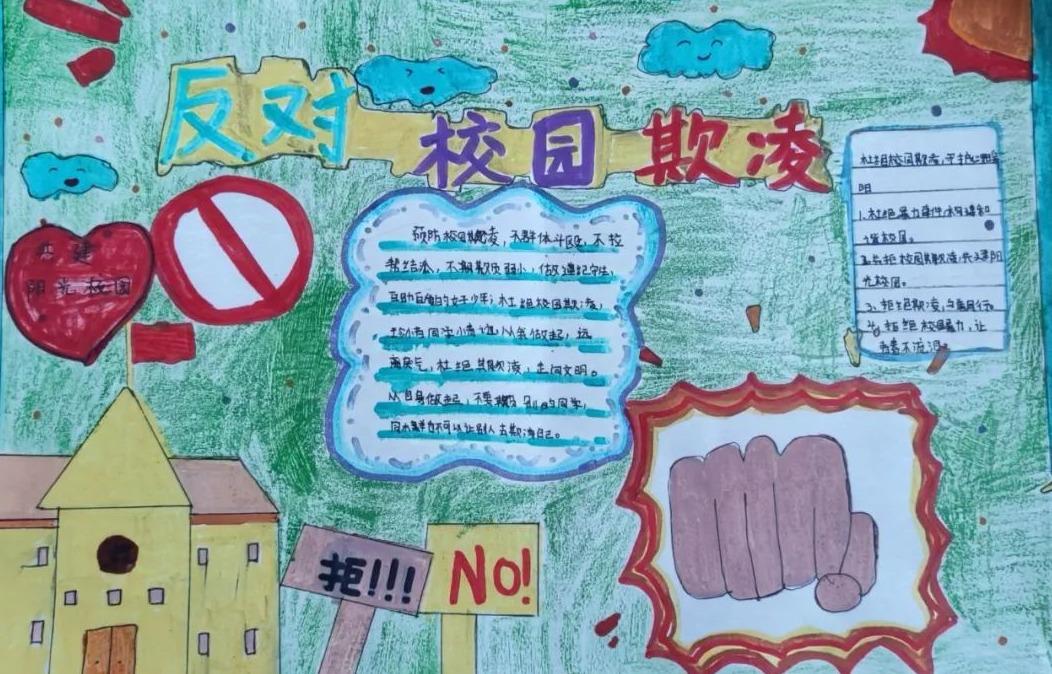 反对
校园 欺凌
共建
阳光校园
预防校园欺凌，不群体斗殴，不拉
帮结派，不欺负弱小，做遵纪守法，
互助互爱的好少年；杜绝校园欺凌，
从我做起，远
离戾气，杜绝欺凌，走向文明。
从自身做起，不要欺负别的同学，
同样也不可以让别人去欺凌自己。
杜绝校园欺凌，守护
阳
1.杜绝暴力事件，构建和
谐校园。
抵校园欺凌，共建阳
光校园。
3、拒绝欺凌，与善同行。
4、拒绝校园暴力，让
青春不流泪。
拒!!!
NO!